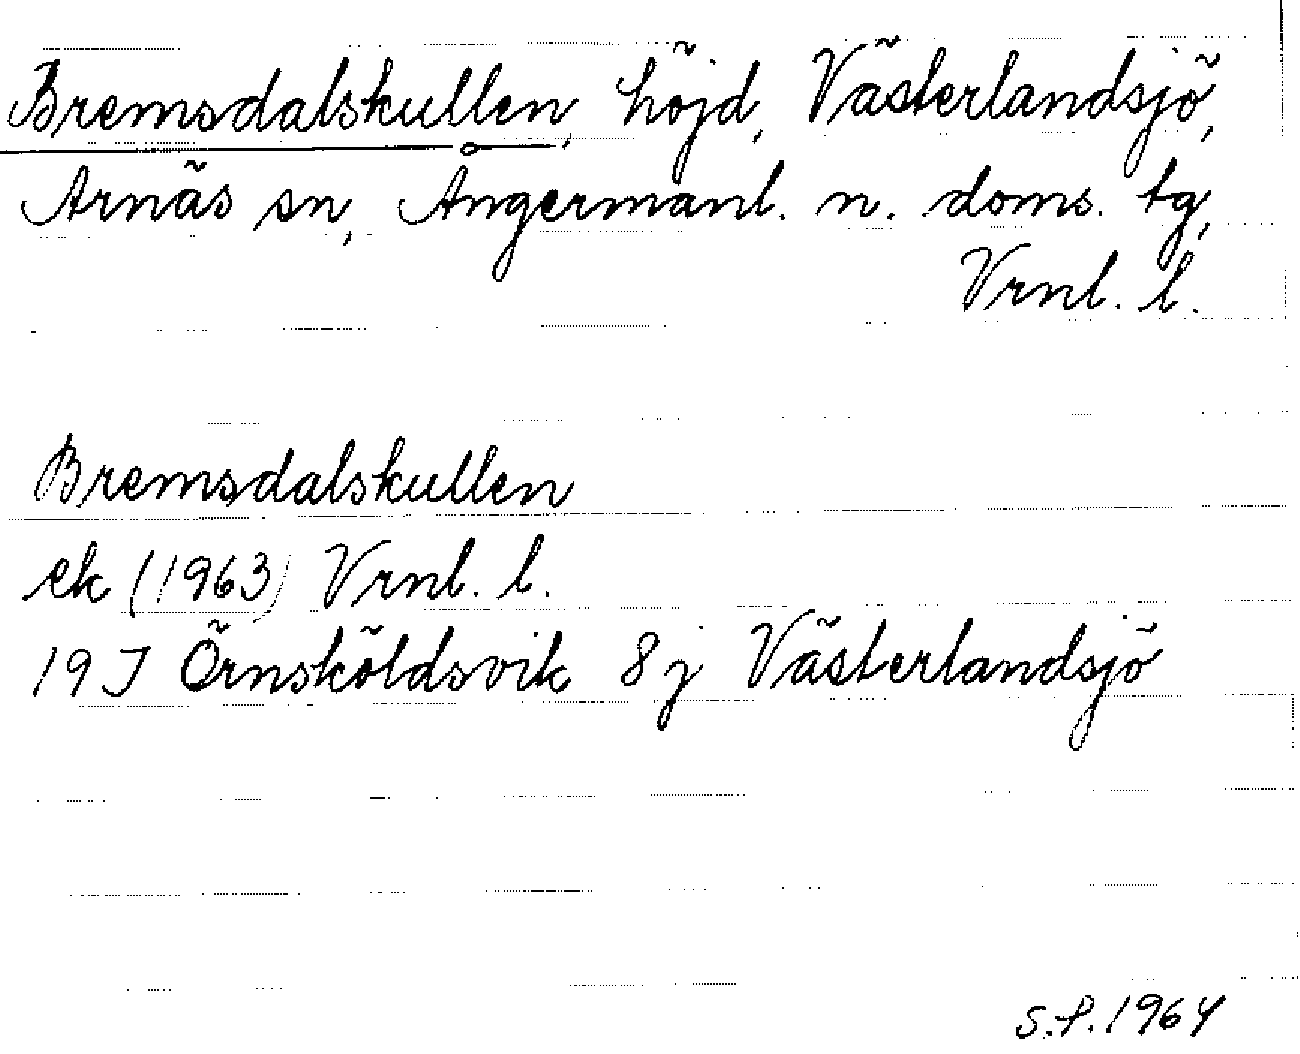 Bremsdalskullen, höjd, Västerlandsjö,
Arnäs sn, Ångermanl. n. doms. tg,
Vrnl. l.
Bremsdalskullen
ek (1963) Vrnl. l.
19 J Örnsköldsvik 8 j Västerlandsjö
S.P. 1964